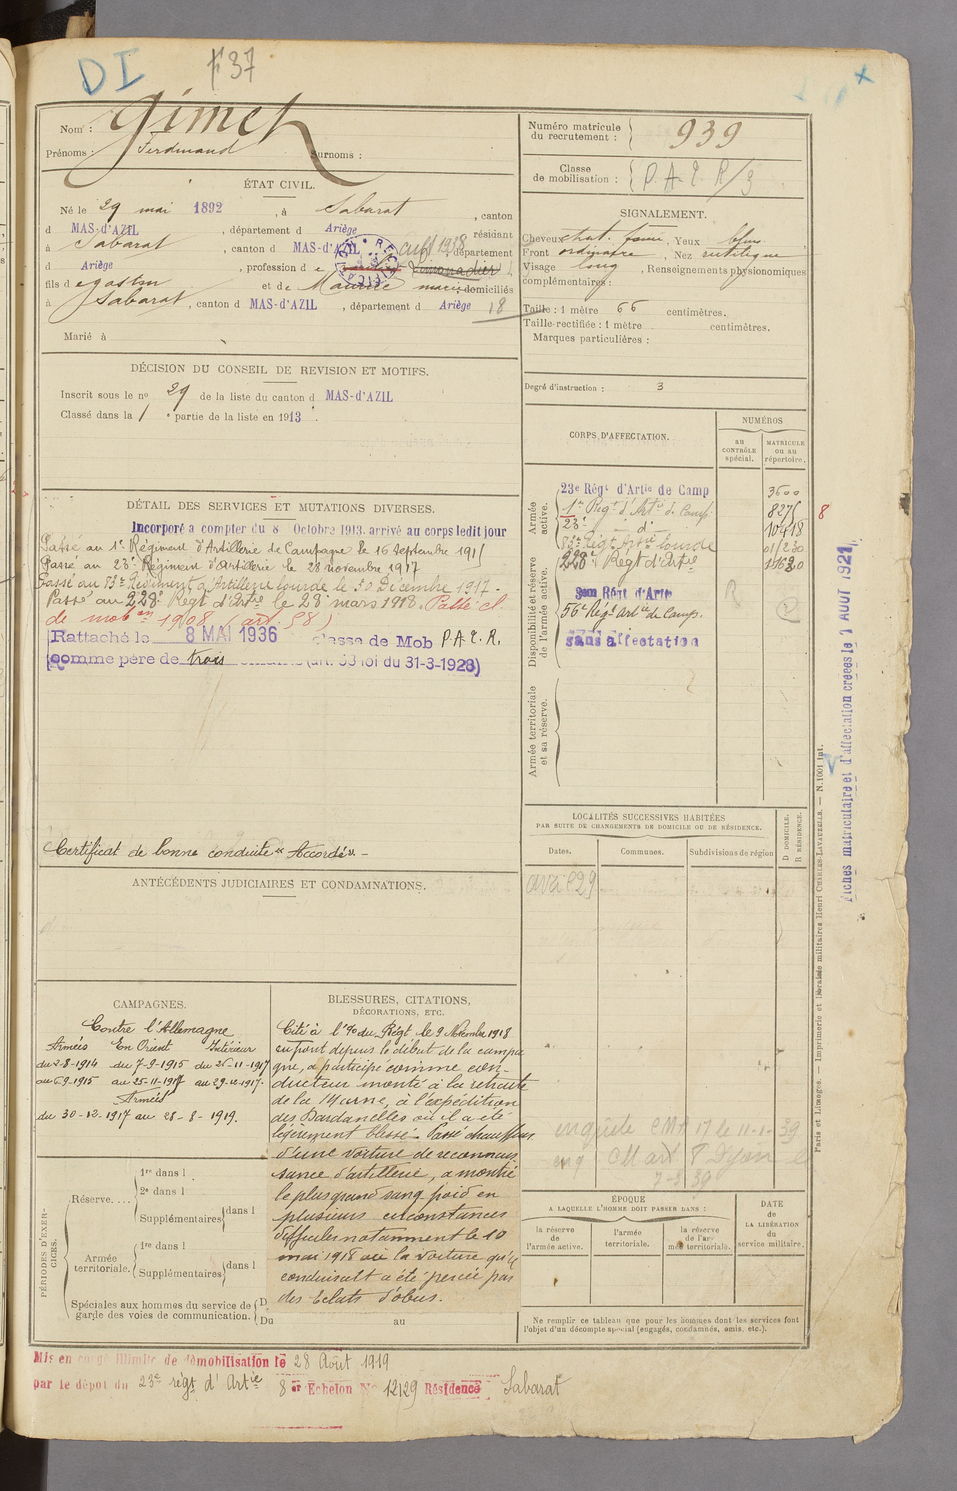 DI F37
Nom : Gimet
Prénoms : Ferdinand Surnoms :
Numéro matricule
du recrutement : 939
Classe
de mobilisation : P.A.E.R/3
ÉTAT CIVIL.
Né le 29 mai 1892, à Sabarat, canton
d MAS-d'AZIL, département d Ariège résidant
à Sabarat, canton d MAS-d'AZIL, département
d Ariège, profession d e Limonadier
fils d e et de Maurie domiciliés
à Sabarat, canton d MAS-d'AZIL, département d Ariège 18
Marié à
SIGNALEMENT.
Cheveux chat. foncé, Yeux bleus
Front ordinaire, Nez rectiligne
Visage long, Renseignements physionomiques
complémentaires :
Taille : 1 mètre 66 centimètres.
Taille rectifiée : 1 mètre centimètres.
Marques particulières :
Degré d'instruction : 3
DÉCISION DU CONSEIL DE REVISION ET MOTIFS.
Inscrit sous le no 29 de la liste du canton d MAS-d'AZIL
Classé dans la 1 e partie de la liste en 1913.
CORPS D'AFFECTATION.
NUMÉROS
AU
CONTRÔLE
spécial.
MATRICULE
ou au
répertoire.
Armée
active.
23e Régt d'Artie de Camp 3600
1er Régt d'Artie d. Camp. 8275 8
23e d° 10418
83e Régt Artie Lourde 01/230
228e Régt d'Artie
Disponibilité et réserve
de l'armée active.
Régt d'Artie
56e Régt Artie de Camp. R
sans affectation
Armée territoriale
et sa réserve.
DÉTAIL DES SERVICES ET MUTATIONS DIVERSES.
Incorporé a compter du 8 Octobre 1913. arrivé au corps ledit jour
Passé au 1er Régiment d'Artillerie de Campagne le 16 Septembre 1915
Passé au 23e Régiment d'Artillerie le 28 novembre 1917
Passé au 83e Régiment d'Artillerie lourde le 30 Décembre 1917.
Passé au 228e Régt d'Artie le 28 mars 1918. Passé cl.
de mobon 1908 (art. 58)
Rattaché le 8 MAI 1936 classe de Mob P.A.E.R.
comme père de trois enfants (art. 58 loi du 31-3-1928)
Certificat de bonne conduite "Accordé". -
ANTÉCÉDENTS JUDICIAIRES ET CONDAMNATIONS.
LOCALITÉS SUCCESSIVES HABITÉES
PAR SUITE DE CHANGEMENTS DE DOMICILE OU DE RÉSIDENCE.
D DOMICILE.
R RÉSIDENCE.
Dates.
Communes.
Subdivisions de région
avril 29
enquête CMA 17 le 11-1-39
enq
7-3 39
CAMPAGNES.
Contre l'Allemagne
Armées En Orient Intérieur
du 2-8-1914 du 7-9-1915 du 26-11-1917
au 6-9-1915 au 25-11-1917 au 29-12-1917.
Armées
du 30-12-1917 au 28-8-1919.
BLESSURES, CITATIONS,
DÉCORATIONS, ETC.
Cité à l'o/o du Régt le 9 Novembre 1918
au front depuis le début de la campa
gne, a participé comme con-
ducteur monté à la retraite
de la Marne, à l'expédition
des Dardanelles où il a été
légèrement blessé. Passé chauffeur
d'une voiture de reconnais
sance d'artillerie, a montré
le plus grand sang froid en
plusieurs circonstances
difficiles notamment le 10
mai 1918 où la voiture qu'il
conduisait a été percée par
des éclats d'obus.
PÉRIODES D'EXER-
CICES.
Réserve....
1re dans l
2e dans l
Supplémentaires dans l
Armée
territoriale.
1re dans l
Supplémentaires dans l
Spéciales aux hommes du service de
garde des voies de communication.
D
Du au
ÉPOQUE
A LAQUELLE L'HOMME DOIT PASSER DANS :
DATE
de
LA LIBÉRATION
du
service militaire.
la réserve
de
l'armée active.
l'armée
territoriale.
la réserve
de l'armée territoriale.
Ne remplir ce tableau que pour les hommes dont les services font
l'objet d'un décompte spécial (engagés, condamnés, omis, etc.).
Mis en congé illimité de démobilisation le 28 Août 1919
par le dépôt du 23e régt d'Artie 8 er Echelon No 12129 Résidence Sabarat
Paris et Limoges. — Imprimerie et librairie militaires Henri CHARLES-LAVAUZELLE. — N. 1001 int.
Fiches matriculaire et d'affectation créées le 1 AOUT 1921